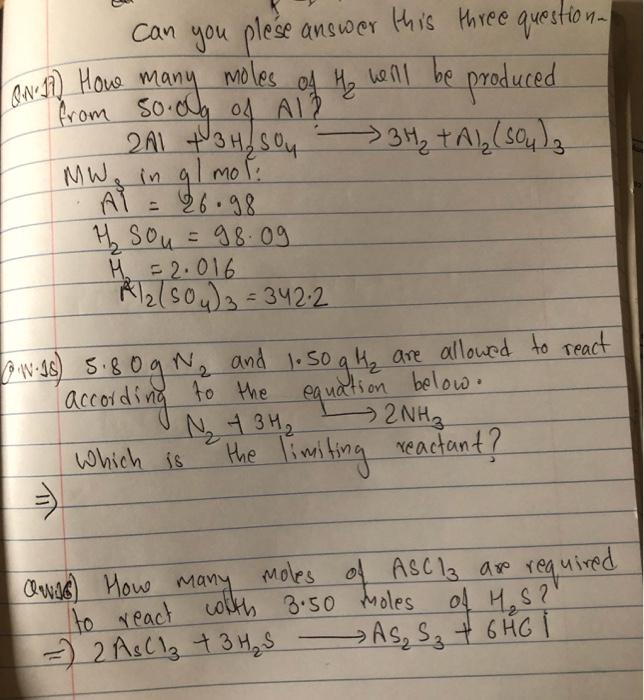 can you plese answer this three question-
Q.N.17) How many moles of H2 will be produced
from 50.0g of Al?
2Al + 3H2SO4 → 3H2 + Al2(SO4)3
MWs in g/mol:
Al = 26.98
H2SO4 = 98.09
H2 = 2.016
Al2(SO4)3 = 342.2
5.80g N2 and 1.50g H2 are allowed to react
according to the equation below.
N2 + 3H2 → 2NH3
Which is the limiting reactant?
⇒
How many moles of AsCl3 are required
to react with 3.50 moles of H2S?
⇒) 2AsCl3 + 3H2S → AS2S3 + 6HCl